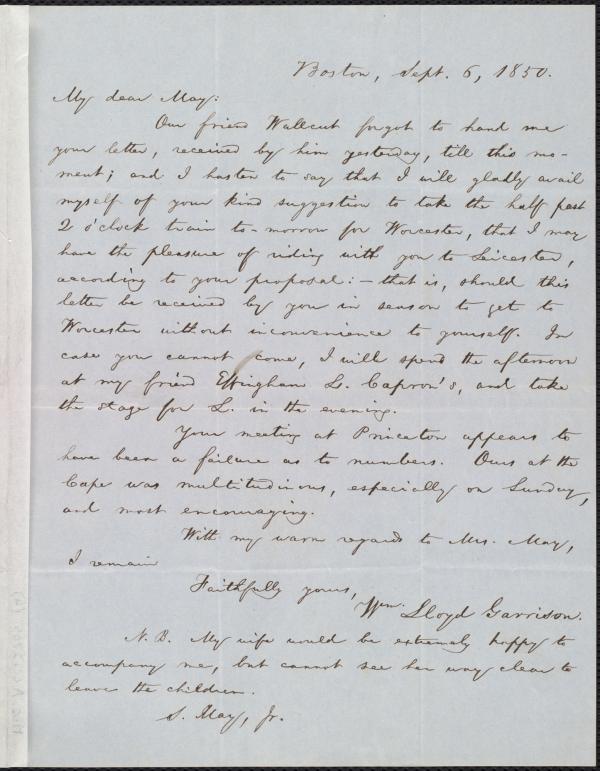 Boston, Sept. 6, 1850.
My dear May:
Our friend Wallcut forgot to hand me
your letter, received by him yesterday, till this mo-
ment; and I hasten to say that I will gladly avail
myself of your kind suggestion to take the half past
2 o'clock train to-morrow for Worcester, that I may
have the pleasure of riding with you to Leicester,
according to your proposal:—that is, should this
letter be received by you in season to get to
Worcester without inconvenience to yourself. In
case you cannot come, I will spend the afternoon
at my friend Effingham L. Capron's, and take
the stage for L. in the evening.
Your meeting at Princeton appears to
have been a failure as to numbers. Ours at the
Cape was multitudinous, especially on Sunday,
and most encouraging.
With my warm regards to Mrs. May,
I remain
Faithfully yours,
Wm. Lloyd Garrison.
N. B. My wife would be extremely happy to
accompany me, but cannot see her way clear to
leave the children.
S. May, Jr.